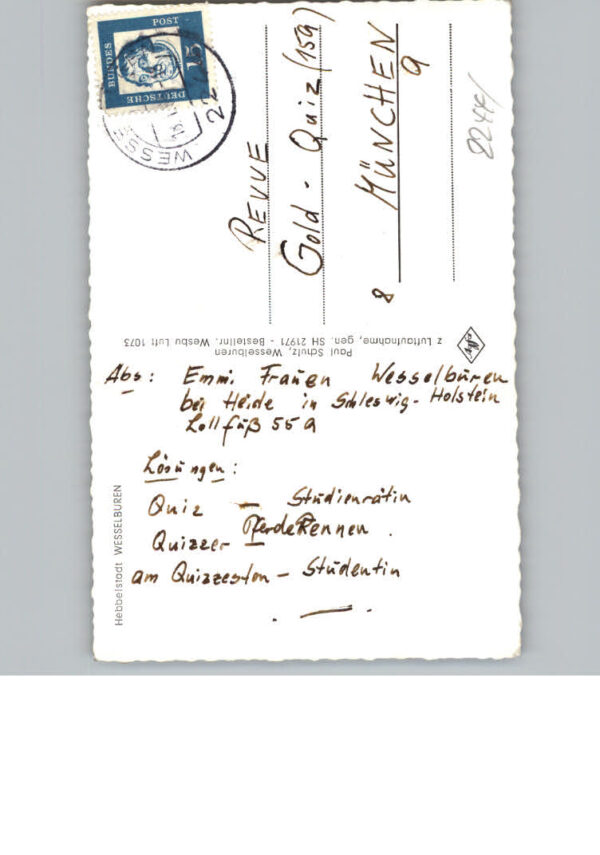 DEUTSCHE
BUNDES
POST
15
WESSE
22
REVUE
Gold - Quiz (159)
8 MÜNCHEN
9
2244/
Paul Schulz, Wesselburen
z Luftaufnahme, gen. SH 21971 - Bestellnr. Wesbu Luft 1073
Abs: Emmi Frauen Wesselbüren
bei Heide in Schleswig-Holstein
Lollfüß 55a
Lösüngen:
Quiz — Stüdienrätin
Quizzer PferdeRennen.
am Quizzeston - Stüdentin
Hebbelstadt WESSELBUREN